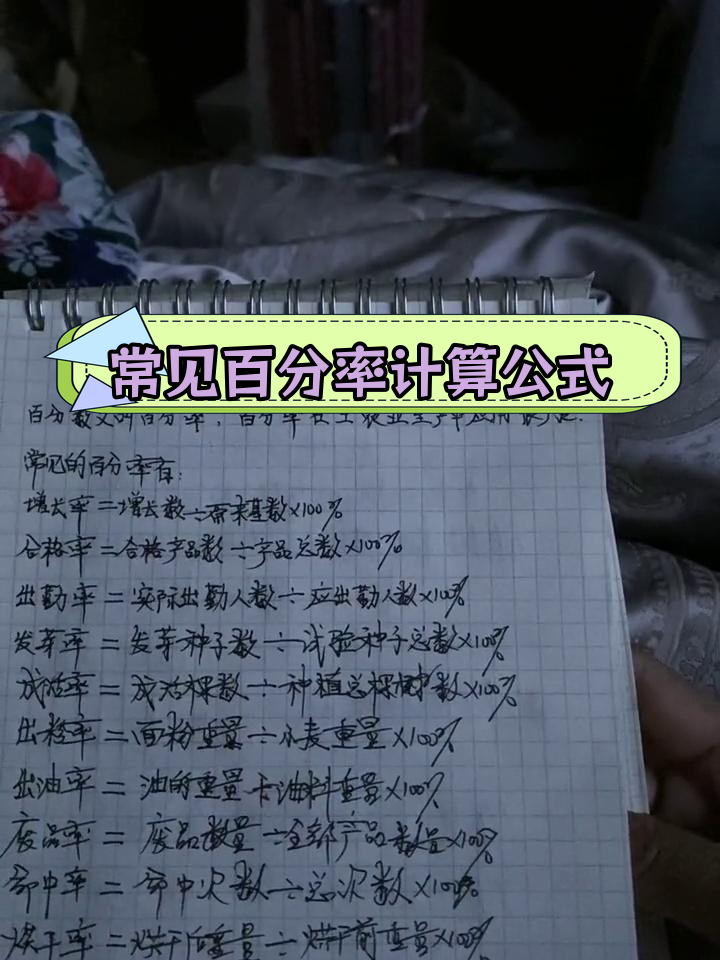 常见百分率计算公式
百分数又叫百分率，百分率在工农业生产中应用很广泛.
常见的百分率有：
增长率＝增长数÷原来基数×100%
合格率＝合格产品数÷产品总数×100%
出勤率＝实际出勤人数÷应出勤人数×100%
发芽率＝发芽种子数÷试验种子总数×100%
成活率＝成活棵数÷种植总棵数×100%
出粉率＝面粉重量÷小麦重量×100%
出油率＝油的重量÷油料重量×100%
废品率＝废品数量÷全部产品数量×100%
命中率＝命中次数÷总次数×100%
烘干率＝烘干后重量÷烘干前重量×100%